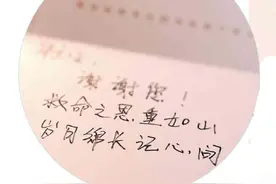 谢谢您！
救命之恩重如山
岁月绵长记心间